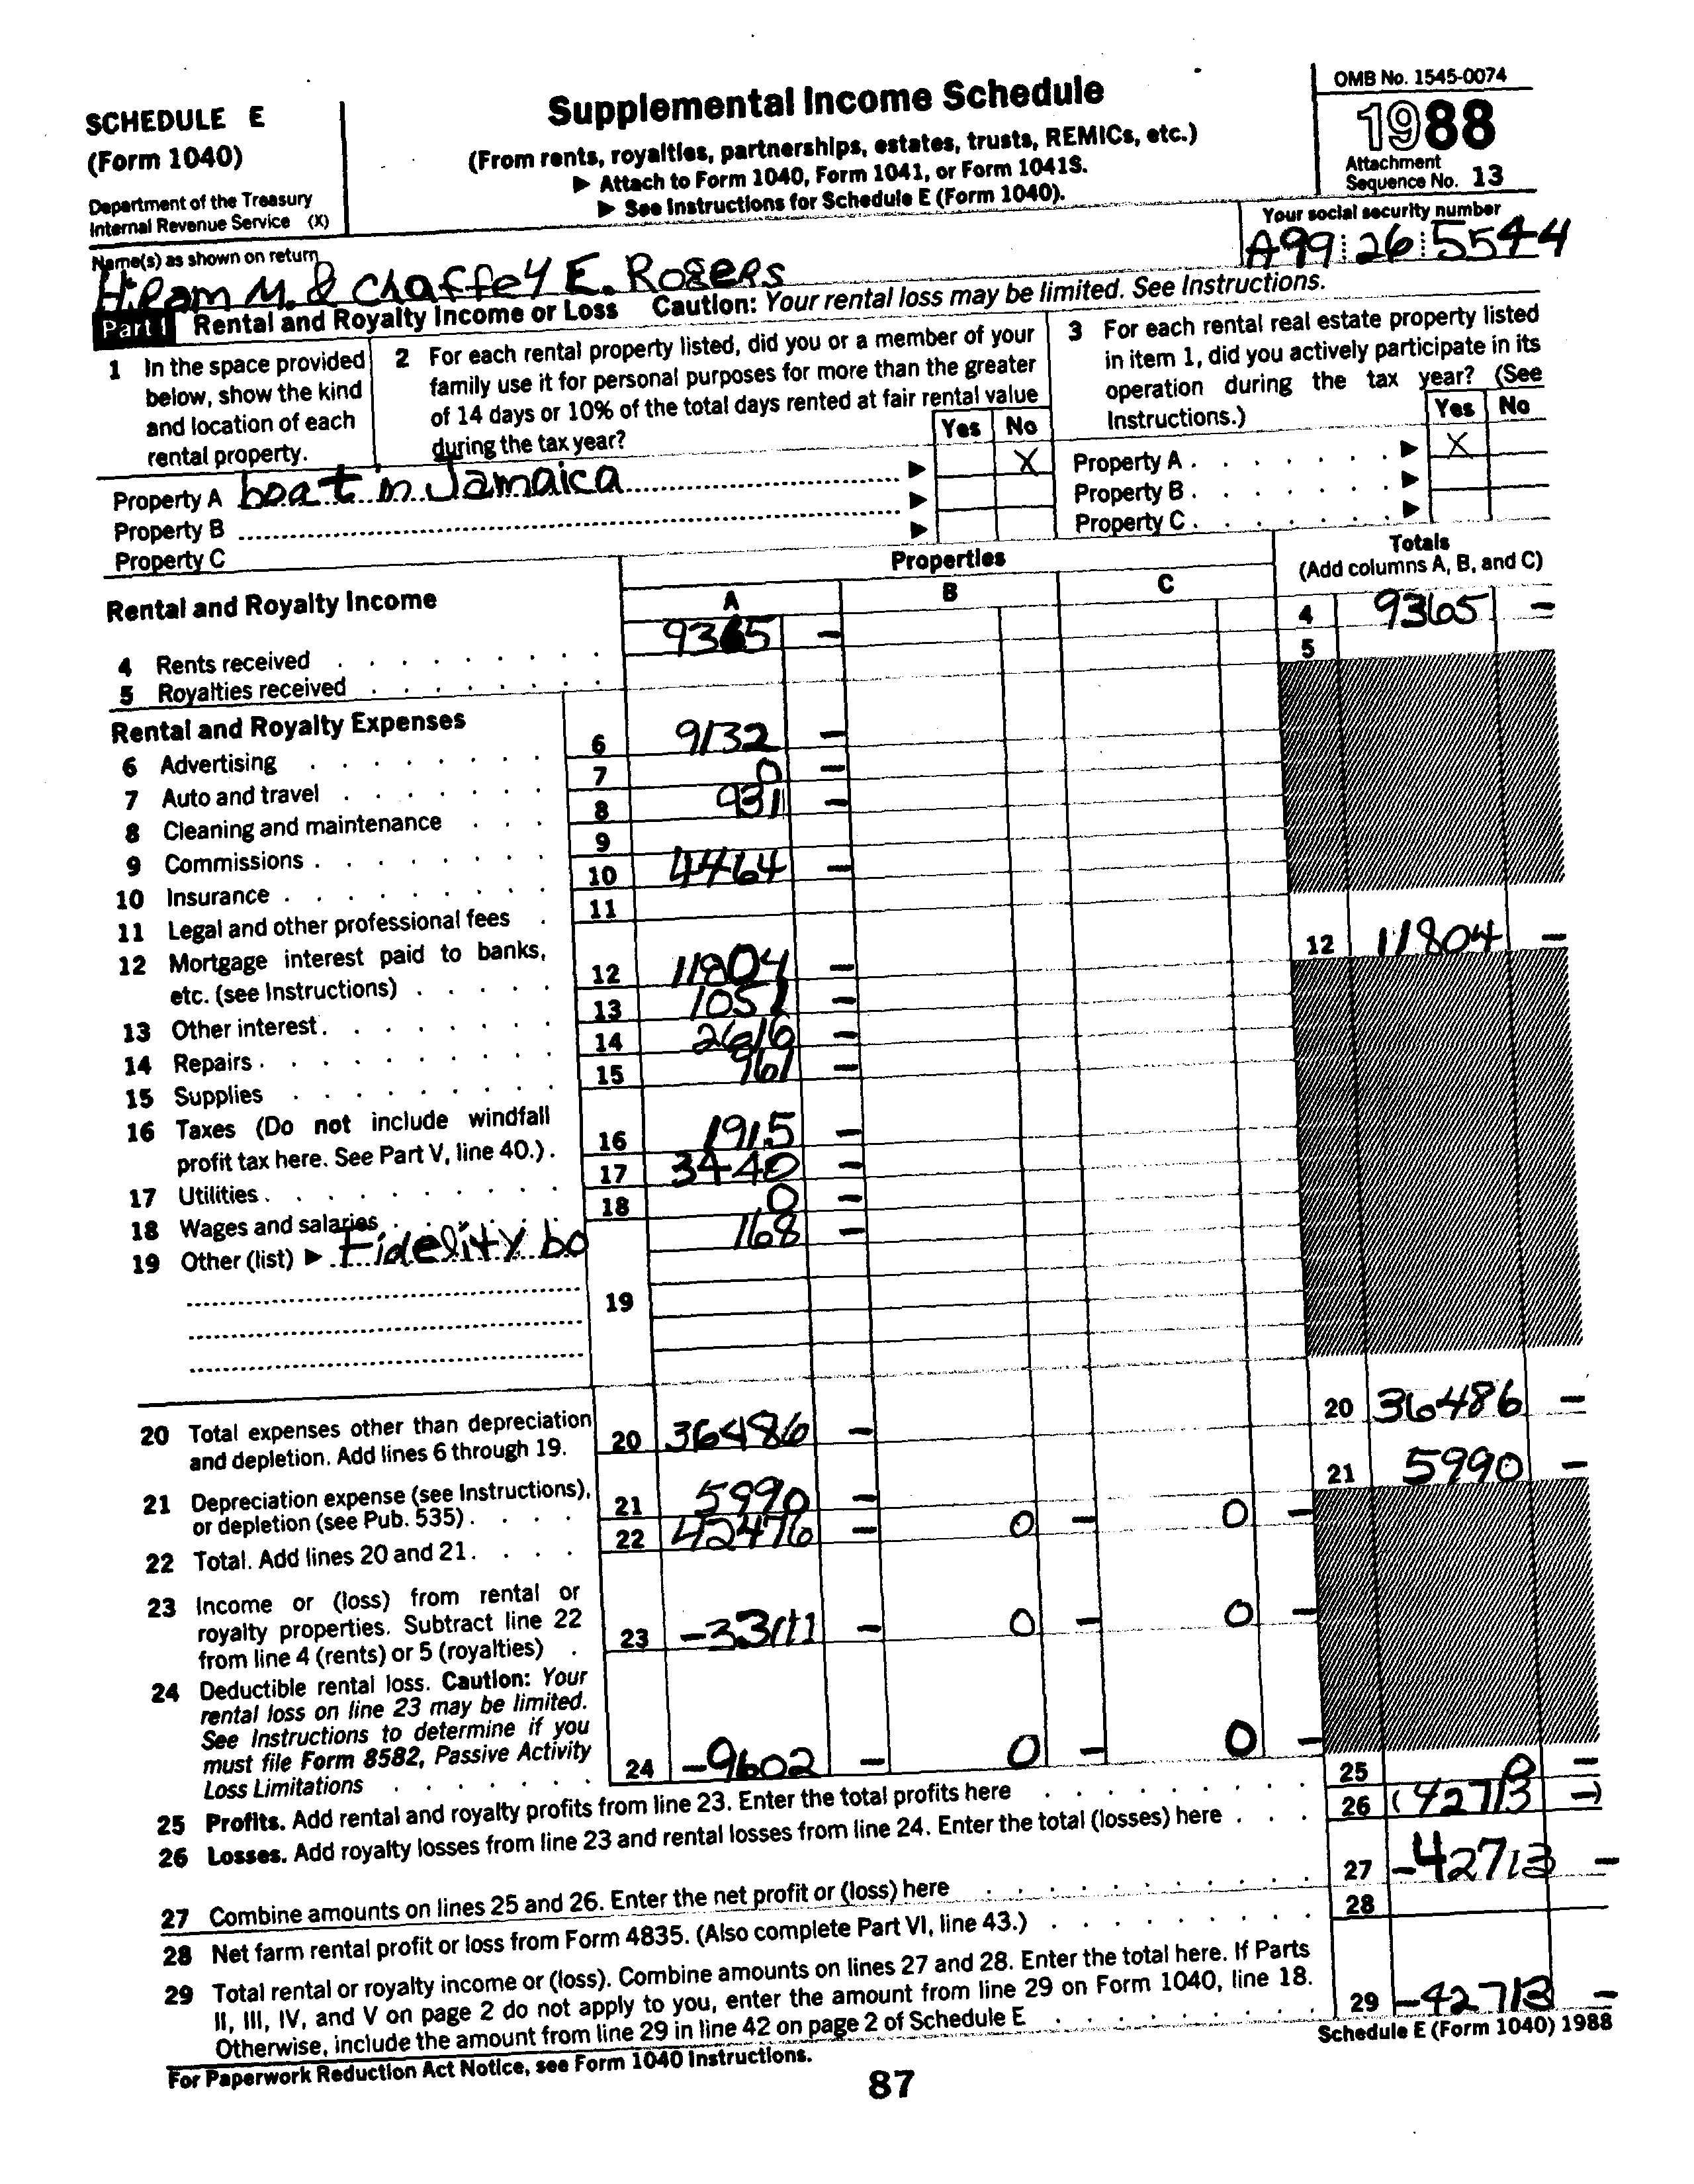 SCHEDULE E
(Form 1040)
Department of the Treasury
Internal Revenue Service (X)
Supplemental Income Schedule
(From rents, royalties, partnerships, estates, trusts, REMICs, etc.)
▶ Attach to Form 1040, Form 1041, or Form 1041S.
▶ See Instructions for Schedule E (Form 1040).
OMB No. 1545-0074
1988
Attachment
Sequence No. 13
Name(s) as shown on return
Hiram M. & Chaffey E. Rogers
Your social security number
A99 26 5544
Part I Rental and Royalty Income or Loss Caution: Your rental loss may be limited. See Instructions.
1 In the space provided
below, show the kind
and location of each
rental property.
2 For each rental property listed, did you or a member of your
family use it for personal purposes for more than the greater
of 14 days or 10% of the total days rented at fair rental value
during the tax year?
Yes No
3 For each rental real estate property listed
in item 1, did you actively participate in its
operation during the tax year? (See
Instructions.)
Yes No
Property A boat in Jamaica ▶ X
Property B ▶
Property C ▶
Property A ▶ X
Property B ▶
Property C ▶
Properties
Totals
(Add columns A, B, and C)
Rental and Royalty Income
A B C
4 Rents received 9365 – 4 9365 –
5 Royalties received 5
Rental and Royalty Expenses
6 Advertising 6 9132 –
7 Auto and travel 7 0 –
8 Cleaning and maintenance 8 931 –
9 Commissions 9
10 Insurance 10 4464 –
11 Legal and other professional fees 11
12 Mortgage interest paid to banks,
etc. (see Instructions) 12 11804 – 12 11804 –
13 Other interest 13 1051 –
14 Repairs 14 2616 –
15 Supplies 15 961 –
16 Taxes (Do not include windfall
profit tax here. See Part V, line 40.) 16 1915 –
17 Utilities 17 3440 –
18 Wages and salaries 18 0 –
19 Other (list) ▶ Fidelity bo 168 –
19
20 Total expenses other than depreciation
and depletion. Add lines 6 through 19. 20 36486 – 20 36486 –
21 Depreciation expense (see Instructions),
or depletion (see Pub. 535) 21 5990 – 21 5990 –
22 Total. Add lines 20 and 21 22 42476 – 0 – 0 –
23 Income or (loss) from rental or
royalty properties. Subtract line 22
from line 4 (rents) or 5 (royalties) 23 -33111 – 0 – 0 –
24 Deductible rental loss. Caution: Your
rental loss on line 23 may be limited.
See Instructions to determine if you
must file Form 8582, Passive Activity
Loss Limitations 24 -9602 – 0 – 0 –
25 Profits. Add rental and royalty profits from line 23. Enter the total profits here 25 0 –
26 Losses. Add royalty losses from line 23 and rental losses from line 24. Enter the total (losses) here 26 (42713 –)
27 Combine amounts on lines 25 and 26. Enter the net profit or (loss) here 27 -42713 –
28 Net farm rental profit or loss from Form 4835. (Also complete Part VI, line 43.) 28
29 Total rental or royalty income or (loss). Combine amounts on lines 27 and 28. Enter the total here. If Parts
II, III, IV, and V on page 2 do not apply to you, enter the amount from line 29 on Form 1040, line 18.
Otherwise, include the amount from line 29 in line 42 on page 2 of Schedule E 29 -42713 –
For Paperwork Reduction Act Notice, see Form 1040 Instructions.
Schedule E (Form 1040) 1988
87